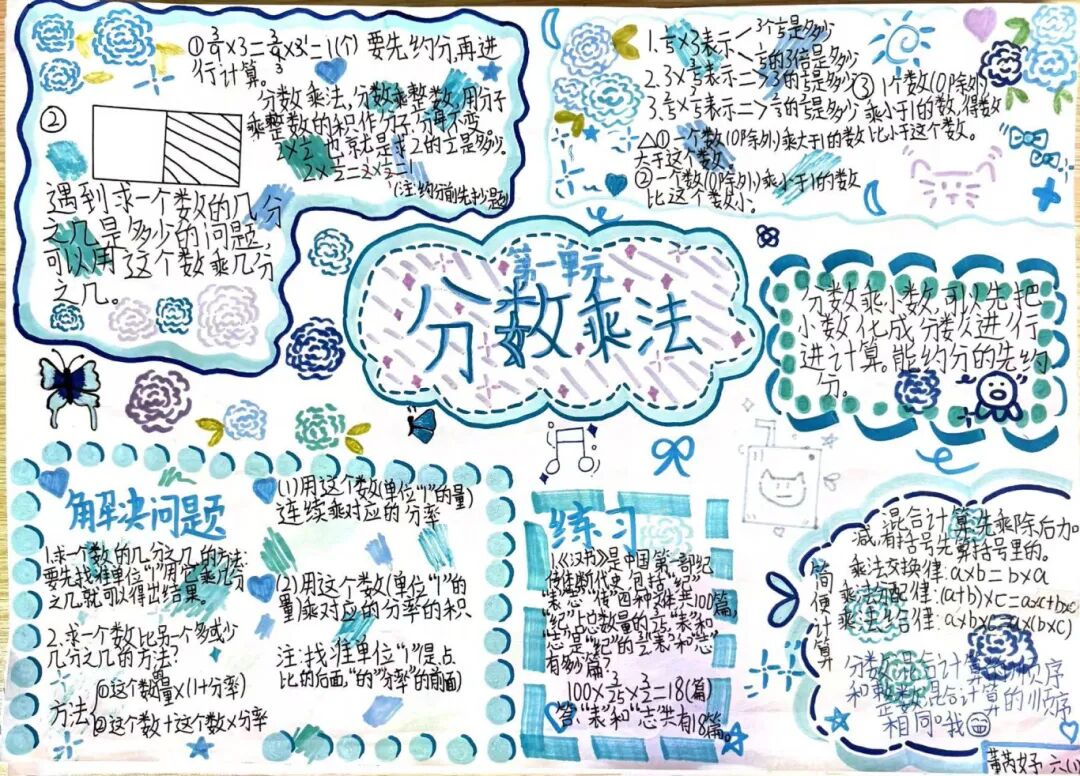 ①
×3=
×3=1(个) 要先约分,再进
行计算。
分数乘法,分数乘整数,用分子
乘整数的积作分子,分母不变。
②
2×1/2也就是求2的1/2是多少。
(注:约分前先抄题)
遇到求一个数的几分
之几是多少的问题,
可以用这个数乘几分
之几。
3个
是多少
的3倍是多少
③1个数(0除外)
乘小于1的数,得数
比小于这个数。
△①一个数(0除外)乘大于1的数
大于这个数
②一个数(0除外)乘小于1的数
比这个数小。
第一单元
分数乘法
分数乘小数,可以先把
小数化成分数进行
进计算。能约分的先约
分。
解决问题
1.求一个数的几分之几的方法:
要先找准单位“1”用它乘几分
之几,就可以得出结果。
2.求一个数比另一个多或少
几分之几的方法?
方法
①这个数量×(1+分率)
②这个数+这个数×分率
(1)用这个数(单位“1”的量)
连续乘对应的分率
(2)用这个数(单位“1”的
量)乘对应的分率的积
注:找准单位“1”是、占
比的后面,“的”分率“的前面)
练习
1.《汉书》是中国第一部纪
传体断代史,包括“纪”
“表”“志”“传”四种文体共100篇,
有多少篇?
100×3/25×3/2=18(篇)
答:“表”和“志”共有18篇。
简便计算
混合计算先乘除后加
减,有括号先算括号里的。
乘法交换律:a×b=b×a
乘法分配律:(a+b)×c=a×c+b×c
乘法结合律:a×b×c=a×(b×c)
分数混合计算的顺序
和整数混合计算的顺序
相同。我
六(1)